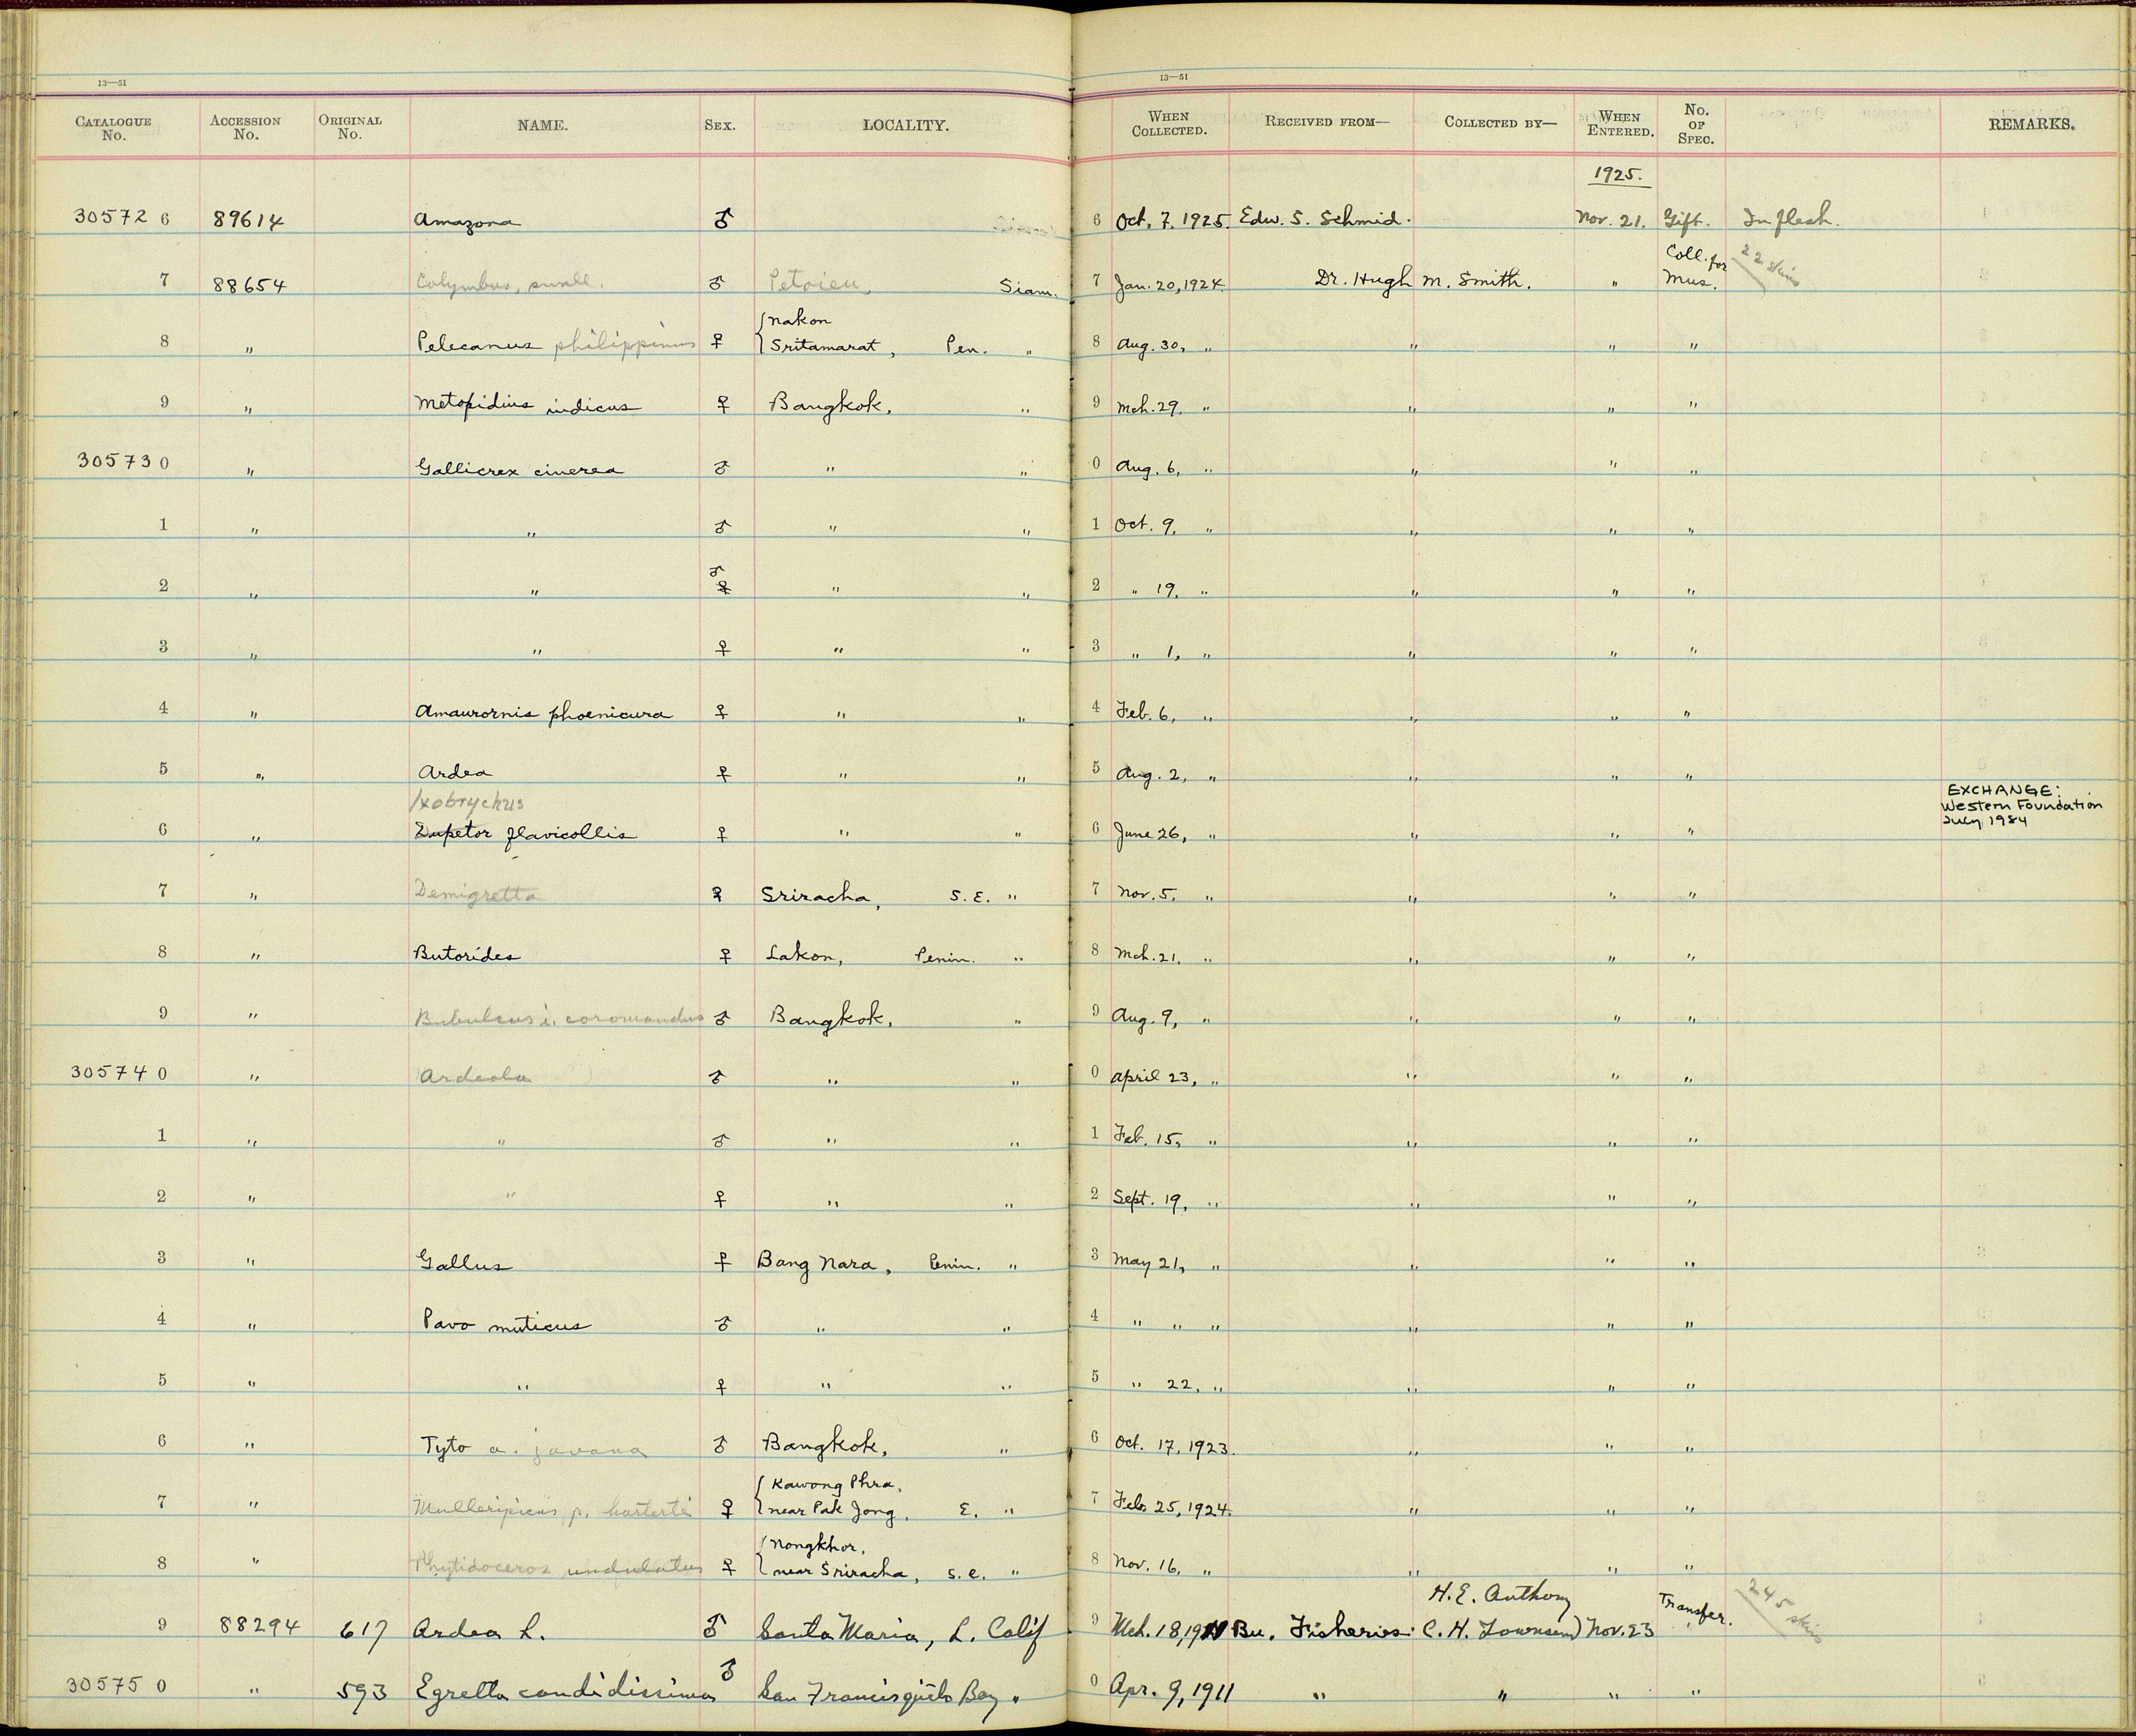 13—51
13—51
CATALOGUE No. ACCESSION No. ORIGINAL No. NAME. SEX. LOCALITY. WHEN COLLECTED. RECEIVED FROM— COLLECTED BY— WHEN ENTERED. No. OF SPEC. REMARKS.
1925.
30572 6 89614 Amazona ♂ 6 Oct. 7. 1925. Edw. S. Schmid. Nov. 21. Gift. In flesh.
7 88654 Colymbus, small. ♂ Petoieu, Siam. 7 Jan. 20, 1924. Dr. Hugh M. Smith. " Coll. for Mus. 22 skins
8 " Pelecanus philippinus ♀ { Nakon Sritamarat, Pen. " 8 Aug. 30, " " " "
9 " Metopidius indicus ♀ Bangkok, " 9 Mch. 29, " " " "
30573 0 " Gallicrex cinerea ♂ " " 0 Aug. 6, " " " "
1 " " ♂ " " 1 Oct. 9, " " " "
2 " " ♂ ♀ " " 2 " 19, " " " "
3 " " ♀ " " 3 " 1, " " " "
4 " Amaurornis phoenicura ♀ " " 4 Feb. 6, " " " "
5 " Ardea ♀ " " 5 Aug. 2, " " " "
Ixobrychus
6 " Dupetor flavicollis ♀ " " 6 June 26, " " " " EXCHANGE: Western Foundation July 1984
7 " Demigretta ♀ Sriracha, S. E. " 7 Nov. 5, " " " "
8 " Butorides ♀ Lakon, Penin. " 8 Mch. 21, " " " "
9 " Bubulcus i. coromandus ♂ Bangkok, " 9 Aug. 9, " " " "
30574 0 " Ardeola ♂ " " 0 April 23, " " " "
1 " " ♂ " " 1 Feb. 15, " " " "
2 " " ♀ " " 2 Sept. 19, " " " "
3 " Gallus ♀ Bang Nara, Penin. " 3 May 21, " " " "
4 " Pavo muticus ♂ " " 4 " " " " " "
5 " " ♀ " " 5 " 22, " " " "
6 " Tyto a. javana ♂ Bangkok, " 6 Oct. 17, 1923. " " "
7 " Mulleripicus p. harterti ♀ { Kawong Phra, near Pak Jong, E. " 7 Feb. 25, 1924. " " "
8 " Rhytidoceros undulatus ♀ { Nongkhor, near Sriracha, S. E. " 8 Nov. 16, " " " "
H. E. Anthony
9 88294 617 Ardea h. ♂ Santa Maria, L. Calif 9 Mch. 18, 1911 Bu. Fisheries. C. H. Townsend) Nov. 23 Transfer. 245 skins
30575 0 " 593 Egretta candidissima ♂ San Francisquito Bay " 0 Apr. 9, 1911 " " " "